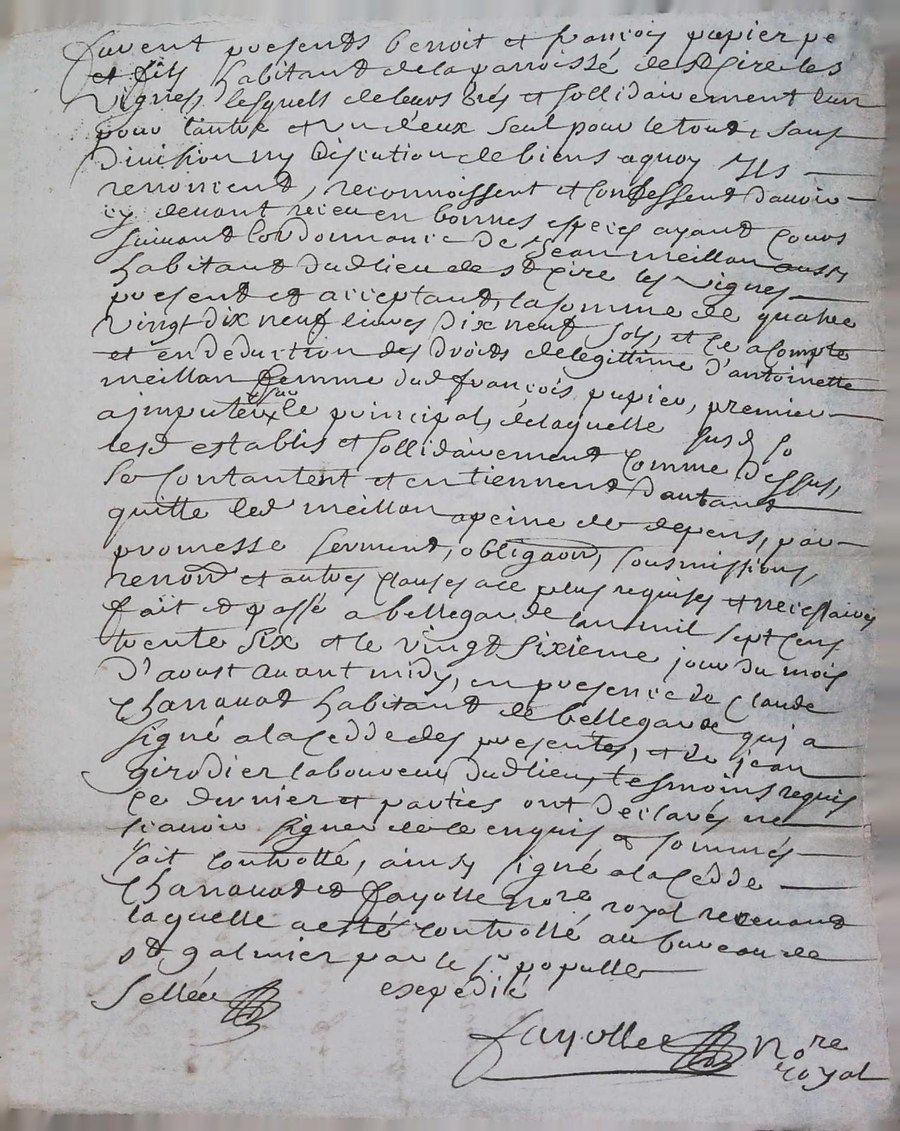 furent presents benoit et françois papier pe
et fils habitant de la parroisse de st Cire les
vignes lesquels de leurs grés et sollidairement l'un
pour l'autre et un d'eux seul pour le tout, sans
division ny discution de biens a quoy ils
renoncent, reconnoissent et confessent d'avoir
cy devant receu en bonnes especes ayant cours
suivant l'ordonnance de Jean meillon aussy
habitant dud lieu de st Cire les vignes
present et acceptant, la somme de quatre
vingt dix neuf livres dix neuf sols, et ce acompte
et en deduction des droits de legittime d'antoinette
meillon femme dud françois papier, premier
a imputer sur le principal, de laquelle susd so
lesd establis et sollidairement comme dessus,
se contantent et en tiennent d'autant
quitte led meillon a peine de depens, par
promesse serment, obligaon, sousmissions,
renond et autres clauses a ce plus requises et necessaires
fait et passé a bellegarde l'an mil sept cens
trente six et le vingt sixieme jour du mois
d'aoust avant midy, en presence de Claude
Charrauad habitant de bellegarde qui a
signé a la cedde des presentes, et de jean
girodier laboureur dud lieu, tesmoins requis
ce dernier et parties ont declarés ne
scavoir signer de ce enquis et sommés
soit controllé, ainsy signé a la cedde
Charrauad et fayolle nore royal recevant
laquelle a esté controllé au bureau de
st galmier par le sr populle
Sellée expedié
fayolle nore
royal